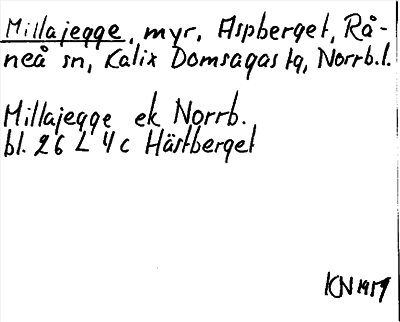 Millajegge, myr, Aspberget, Rå-
neå sn, Kalix Domsagas tg, Norrb.l.
Millajegge ek Norrb.
bl. 26 L 4 c Hästberget
KN 1959